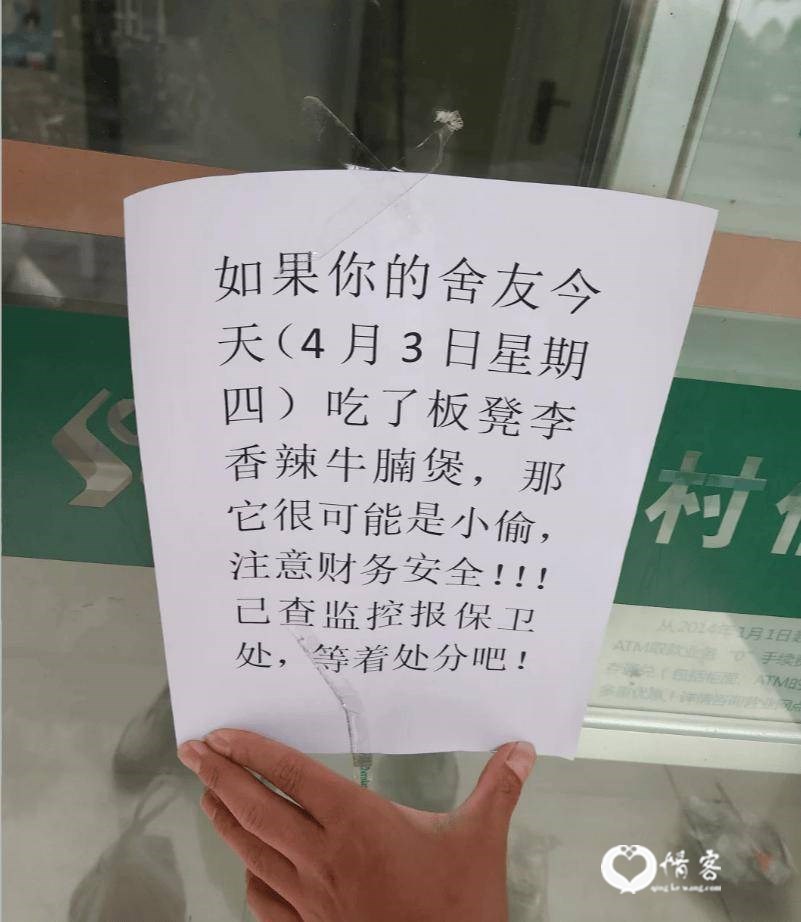 如果你的舍友今
天（4月3日星期
四）吃了板凳李
香辣牛腩煲，那
它很可能是小偷，
注意财务安全！！！
已查监控报保卫
处，等着处分吧！
村
从2014年1月1日起
ATM取款业务“0”手续
存
多重优惠！详情咨询营业网点
情客
qing ke wang.com